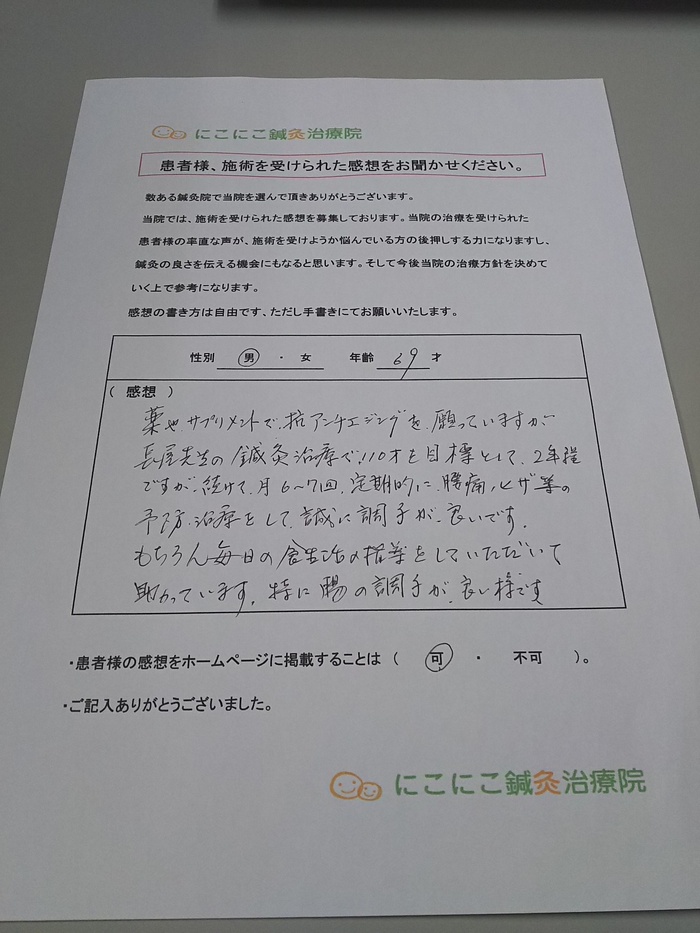 にこにこ鍼灸治療院
患者様、施術を受けられた感想をお聞かせください。
数ある鍼灸院で当院を選んで頂きありがとうございます。
当院では、施術を受けられた感想を募集しております。当院の治療を受けられた
患者様の率直な声が、施術を受けようか悩んでいる方の後押しする力になりますし、
鍼灸の良さを伝える機会にもなると思います。そして今後当院の治療方針を決めて
いく上で参考になります。
感想の書き方は自由です、ただし手書きにてお願いいたします。
性別 男 ・ 女 年齢 69 才
( 感想 )
薬やサプリメントで、抗アンチエイジングを、願っていますが
長屋先生の鍼灸治療で、110才を目標として、2年程
ですが、続けて、月6〜7回、定期的に、腰痛、ヒザ等の
予防、治療をして、誠に調子が、良いです。
もちろん毎日の食生活の指導をしていただいて
助かっています。特に腸の調子が、良い様です
・患者様の感想をホームページに掲載することは ( 可 ・ 不可 )。
・ご記入ありがとうございました。
にこにこ鍼灸治療院